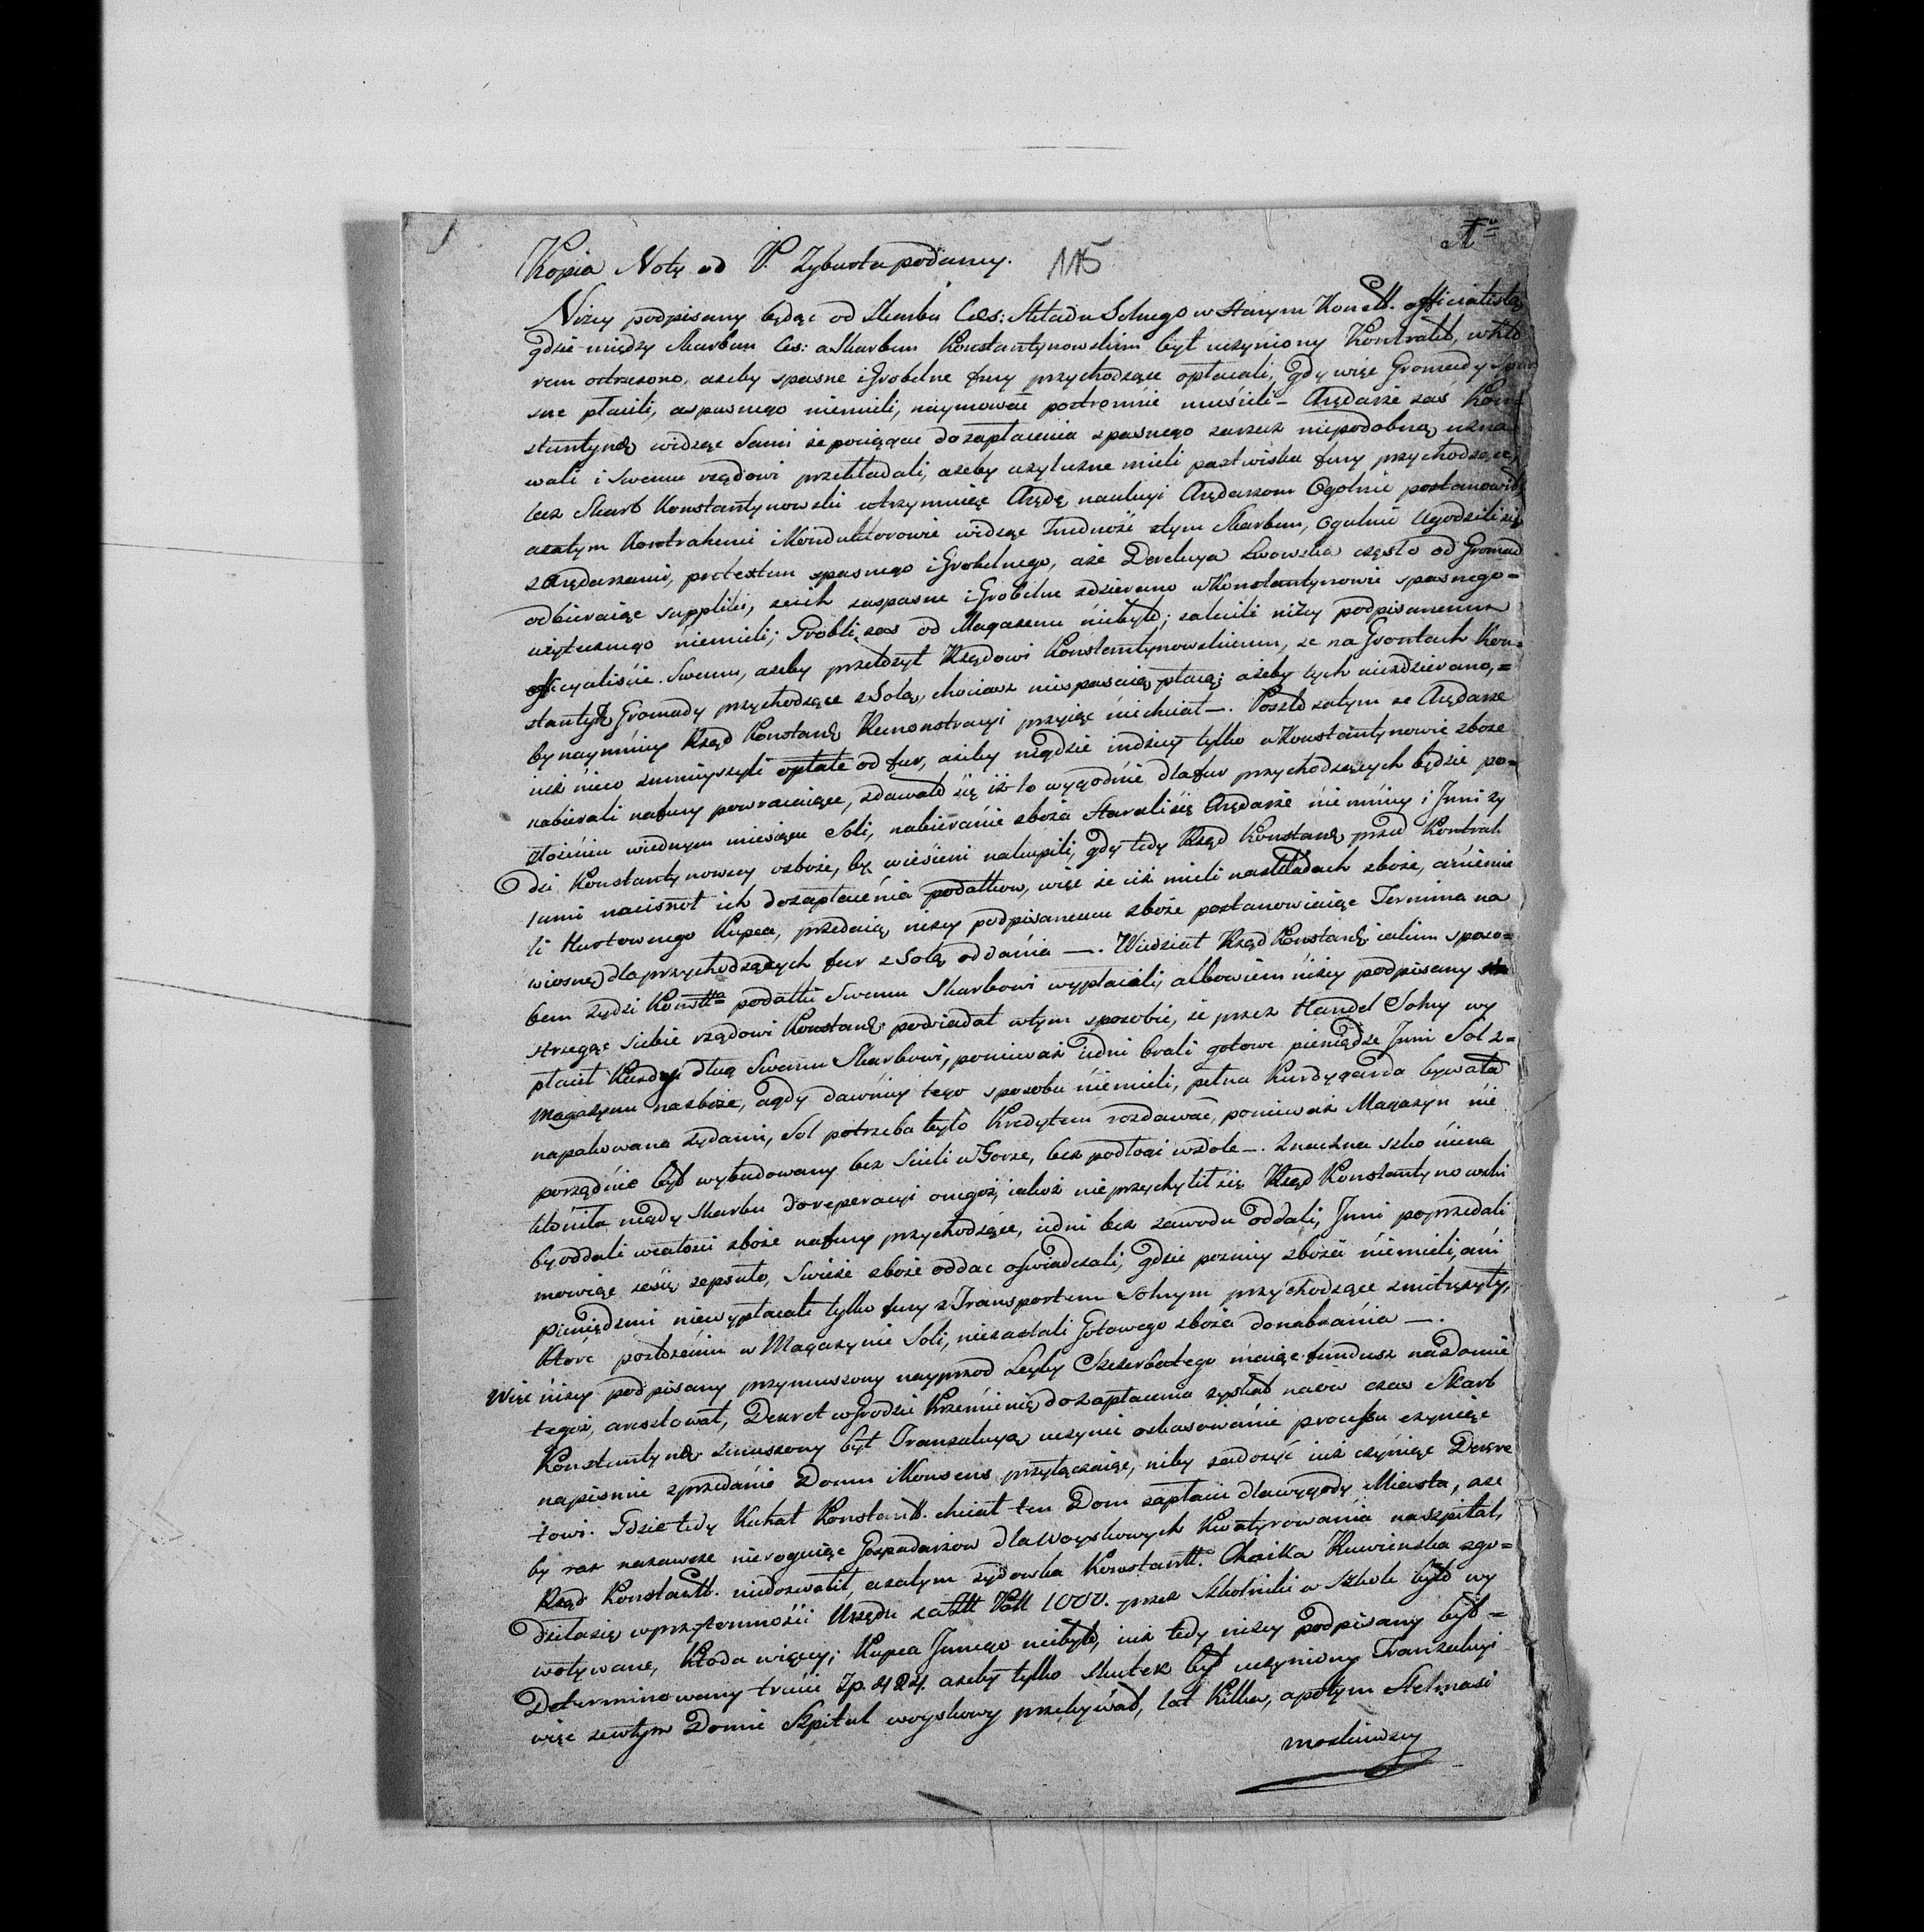 A
Kopia Noty od P. Zyburta podaney. 115
Niżey podpisany będąc od Skarbu Ces: Składu Solnego w Starym Konstt. officialistą
gdzie między Skarbem Ces: a Skarbem Konstantynowskim był uczyniony Kontrakt, w któ
rem ostrzeżono, ażeby spasne i Grobelne fury przychodzące opłacali, gdy więc Gromady spa
sne płacili, a spasnego niemieli, naymować postronnie musieli – Arędarze zaś Kon=
stantynow widząc Sami że pociągać do zapłacenia spasnego za rzecz niepodobną uzna
wali i Swemu rządowi przekładali, ażeby użyteczne mieli pastwiska fury przychodzące,
lecz Skarb Konstantynowski utrzymuiąc Arędę nakłzyi Arędarzom Ogolnie postanowił,
a zatym Kontrahenci i Konduktorowie widząc trudność z tym Skarbem, Ogulnie Ugodzili się
z Arędarzami, pretextem spasnego i Grobelnego, aże Derekcya Lwowska często od Gromad
odbieraiąc suppliki, że ich za spasne i Grobelne zdzierano w Konstantynowie spasnego=
użytecznego niemieli; Grobli zaś od Magazenu niebyło; zalecili niżey podpisanemu
officyaliście Swemu, ażeby przełożył Rządowi Konstantynowskiemu, że na Grontach Kon=
stantyń Gromady przychodzące z Solą, chociasz niespascią płacą; ażeby tych niezdzierano,=
bynaymniey Rząd Konstanń Remonstracyi przyiąc niechciał –. Poszło zatym że Arędarze
niż nieco zumnieyszyli opłate od fur, ażeby nigdzie indziey tylko w Konstantynowie zboże
nabierali na fury powracaiące, zdawało się iż to wygodnie dla fur przychodzących będzie po=
złożeniu w iednym mieyscu Soli, nabieranie zboża starali się Arędarze nie mniey i Jnni Ży
dzi Konstantynowscy o zboże, by w iesieni nakupili, gdy tedy Rząd Konstanń przed Kontrak
tami nacisnoł ich do zapłacenia podatkow, więc że iuż mieli na składach zboże, a niemie
li Hurtownego Kupca, przedaią niżey podpisanemu zboże postanowiaiąc Termina na
wiosnę dla przychodzących fur z Solą oddania —. Wiedział Rząd Konstanń iakim sposo=
bem Żydzi Konstt podatki Swemu Skarbowi wypłacali, albowiem niżey podpisany
strzegąc siebie rządowi Konstanń powiadał w tym sposobie, że przez Handel Solny wy
płacił Każdy dług Swemu Skarbowi, ponieważ iedni brali gotowe pieniądze Jnni Sol z=
Magazynu na zboże, a gdy dawniey tego sposobu niemieli, pełna Kurdygarda bywała
napakowana Żydami, Sol potrzeba było Kredytem rozdawać, ponieważ Magazyn nie
porządnie był wybudowany bez Sieli w Gorze, bez podłogi w dole –. Znaczna szko niena
kłoniła nigdy Skarbu do reperacyi onegoż, iakoż nie przychylił się Rząd Konstantynowski
by oddali w całości zboże na fury przychodzące, iedni bez zawodu oddali, Jnni poprzedali
mowiąc że się zepsuło, Swieże zboże oddac oswiadczali, gdzie pozniey zboża niemieli, ani
pieniędzmi niewypłacali tylko fury z Transportem Solnym przychodzące zmitrężyły,
Które po złożeniu w Magazynie Soli, niezastali Gotowego zboża do nabrania —.
Więc niżey podpisany przymuszony nayprzod Leyby Szczerbatego maiąc fundusz na Domie
tegoż, aresztował, Dekret w Grodzie Krzemienień do zapłacenia zyskał na ow czas Skarb
Konstantyno zmuszony był Tranzakcyą uczynic o skasowanie processu czyniąc
na pismie zprzedanie Domu Konsens przyłączaiąc, niby zadosyć iuż czyniąc Dekre
towi. Gdzie tedy Kahał Konstantt. chciał ten Dom zapłacic dla wygody Miasta, aże
by raz nazawsze nierogując Gospodarzow dla woyskowych Kwatyrowania na szpital,
Rząd Konstantt. niedozwolił, a zatym żydowka Konstantt. Chaika Kuwienska zgo=
dziła się w przytomności Urzędu za 1000. przez Szkolnika w Szkole było wy
woływane, Kto da więcey; Kupca Jnnego niebyło, iuż tedy niżey podpisany był=
Determinowany tracic Zp. 424. ażeby tylko Skutek był uczyniony Tranzakcyi
więc że w tym Domie Szpital woyskowy przebywał, lat Kilka, a potym Stelmasi
moskiewscy